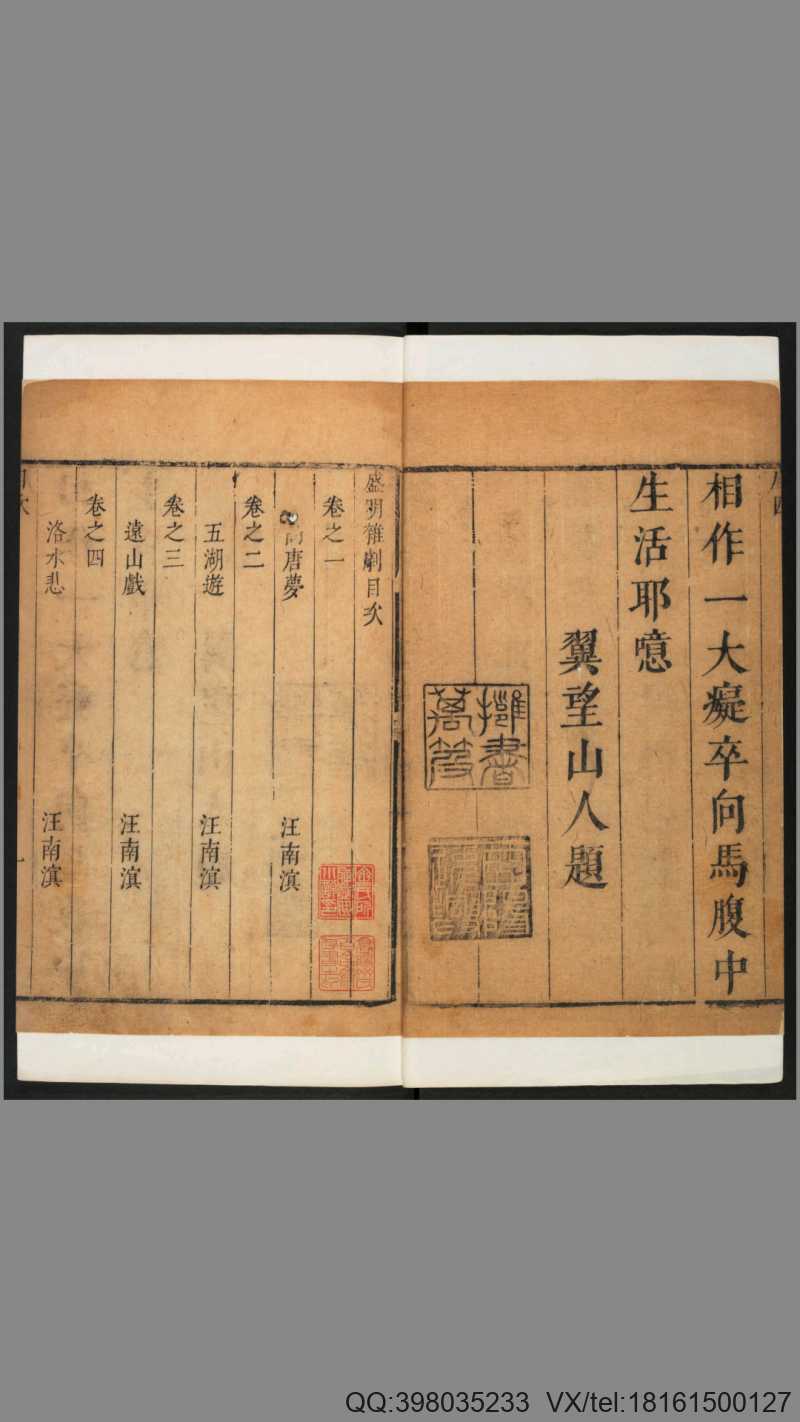 相作一大癡卒向馬腹中
生活耶噫
翼望山人題
擁書
萬卷
盛明雜劇目次
卷之一
唐夢
汪南溟
卷之二
五湖遊
汪南溟
卷之三
遠山戲
汪南溟
卷之四
洛水悲
汪南溟
一
QQ:398035233 VX/tel:18161500127